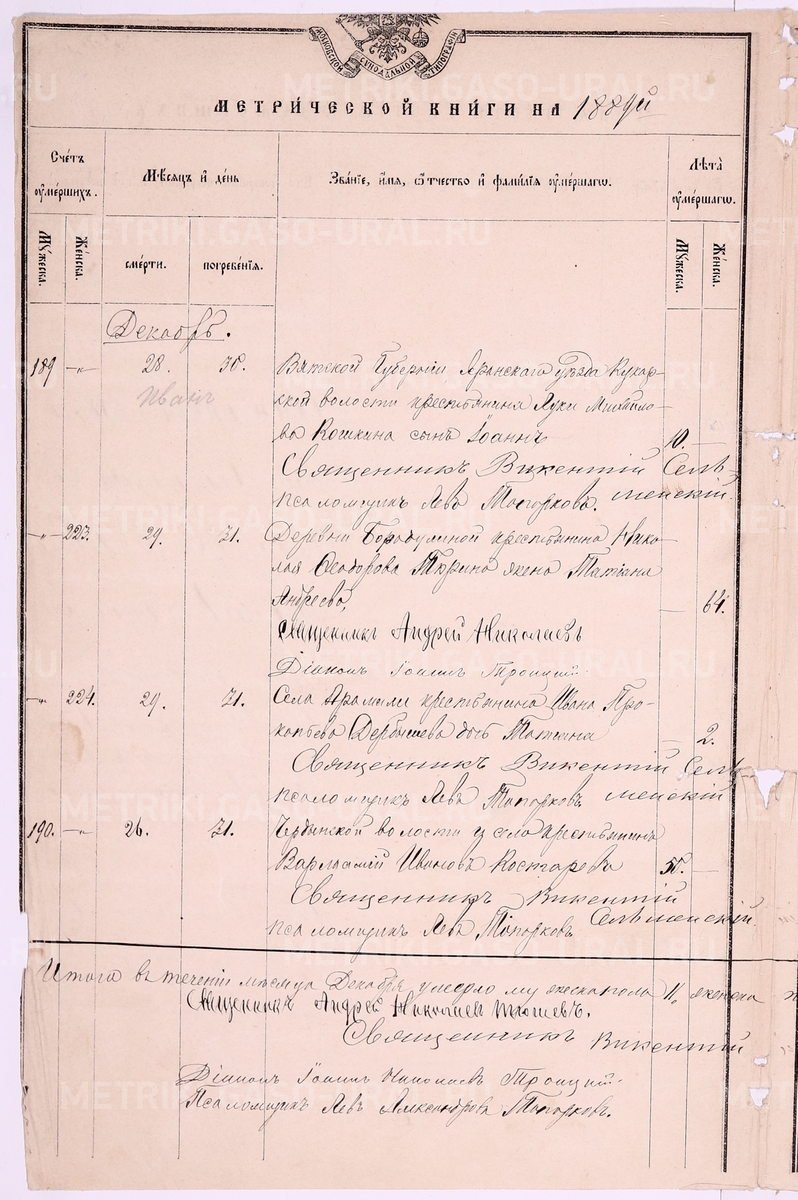 МОСКОВСКОЙ СѴНОДАЛЬНОЙ ТИПОГРАФІИ
МЕТРИ́ЧЕСКОЙ КНИ́ГИ НА 1889й
Сче́тъ оу҆ме́ршихъ.
Мѣ́сяцъ и҆ де́нь
Зва́нїе, и҆́мя, ѻ҆́тчество и҆ фами́лїя оу҆ме́ршагѡ.
Лѣ́та оу҆ме́ршагѡ.
Му́жеска.
Же́нска.
сме́рти.
погребе́нїя.
Му́жеска.
Же́нска.
Декабрь.
189 —"— 28. 30. Вятской Губерніи Яранскаго уѣзда Кукар-
Иванъ
ской волости крестьянина Луки Михайло-
ва Кошкина сынъ Іоаннъ 10. —
Священникъ Викентій Сель-
менскій.
псаломщикъ Левъ Топорковъ.
—"— 223. 29. 31. Деревни Бородулиной крестьянина Нико-
лая Ѳеодорова Тюрина жена Татіана
Андреева, — 64.
Священникъ Андрей Николаевъ
Діаконъ Іоаннъ Троицкій.
—"— 224. 29. 31. Села Арамили крестьянина Ивана Про-
копьева Дербышева дочь Татіана — 2.
Священникъ Викентій Сель-
менскій
псаломщикъ Левъ Топорковъ
190. —"— 26. 31. села крестьянинъ
Варлаамій Ивановъ Костаревъ 50. —
Священникъ Викентій
Сельменскій.
псаломщикъ Левъ Топорковъ
Итого въ теченіи мѣсяца Декабря умерло мужеска пола 11, женска
Священникъ Андрей Николаевъ
Священникъ Викентій
Діаконъ Іоаннъ Николаевъ Троицкій.
Псаломщикъ Левъ Александровъ Топорковъ.
METRIKI.GASO-URAL.RU